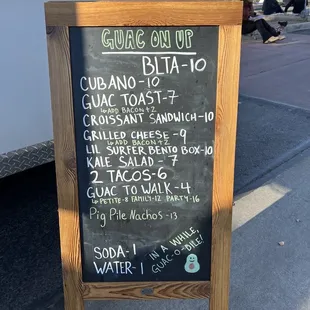 GUAC ON UP
BLTA-10
CUBANO-10
GUAC TOAST-7
↳ADD BACON+2
CROISSANT SANDWICH-10
GRILLED CHEESE-9
↳ADD BACON+2
LIL SURFER BENTO BOX-10
KALE SALAD-7
2 TACOS-6
GUAC TO WALK-4
↳PETITE-8 FAMILY-12 PARTY-16
Pig Pile Nachos-13
SODA-1
WATER-1
IN A WHILE,
GUAC-O-DILE!